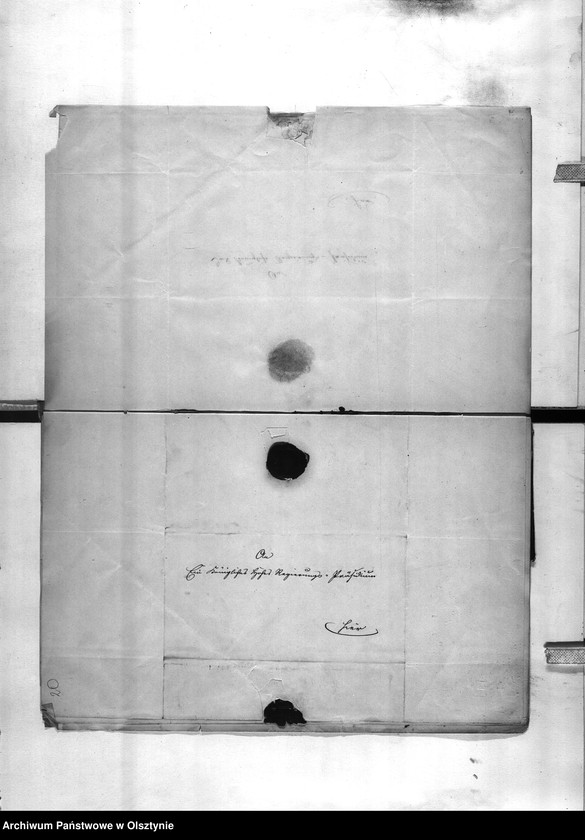 An
Ein Königliches Hohes Regierungs-Präsidium
hier
20
Archiwum Państwowe w Olsztynie